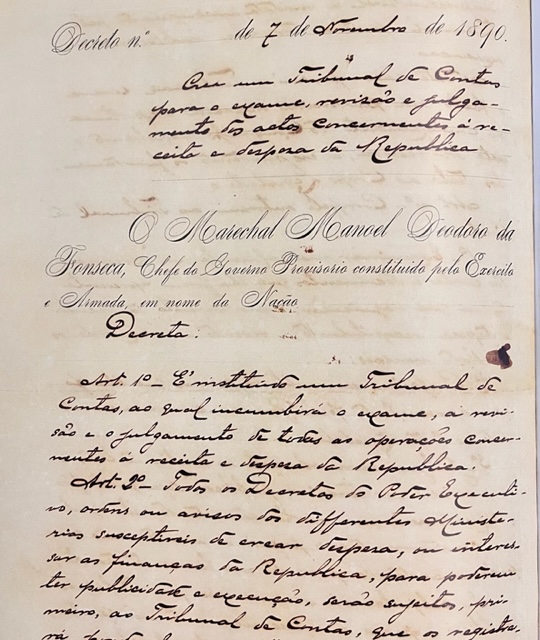 Decreto n.º de 7 de Novembro de 1890.
Crea um Tribunal de Contas
para o exame, revisão e julga-
mento dos actos concernentes á re-
ceita e despeza da Republica
O Marechal Manoel Deodoro da
Fonseca, Chefe do Governo Provisorio constituido pelo Exercito
e Armada, em nome da Nação
Decreta:
Art. 1º — É instituido um Tribunal de
Contas, ao qual incumbirá o exame, a revi-
são e o julgamento de todas as operações concer-
nentes á receita e despeza da Republica.
Art. 2º — Todos os Decretos do Poder Executi-
vo, ordens ou avisos dos differentes Ministe-
rios susceptiveis de crear despeza, ou interes-
sar as finanças da Republica, para poderem
ter publicidade e execução, serão sujeitos, pri-
meiro, ao Tribunal de Contas, que os registra-
rá